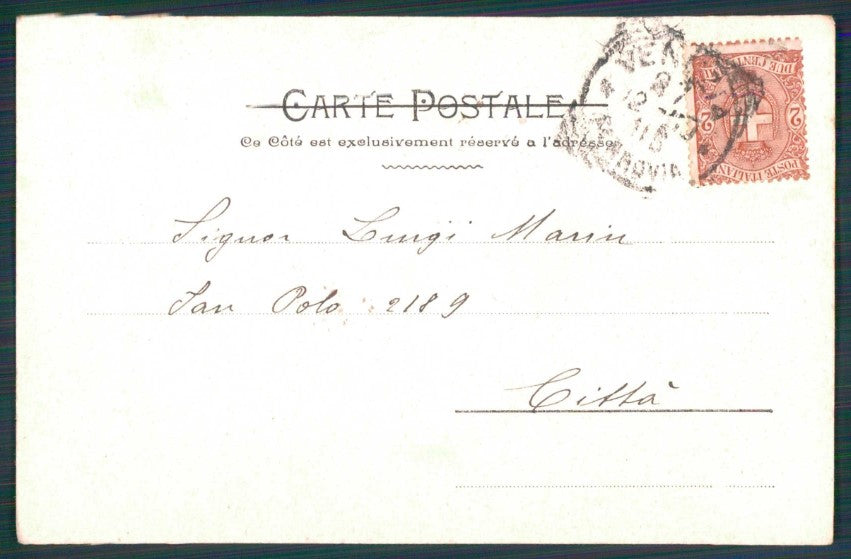 CARTE POSTALE
Ce Côté est exclusivement réservé a l'adresse
VENEZIA
FERROVIA
DUE CENTESIMI
2 2
POSTE ITALIANE
Signor Luigi Marin
San Polo 2189
Città